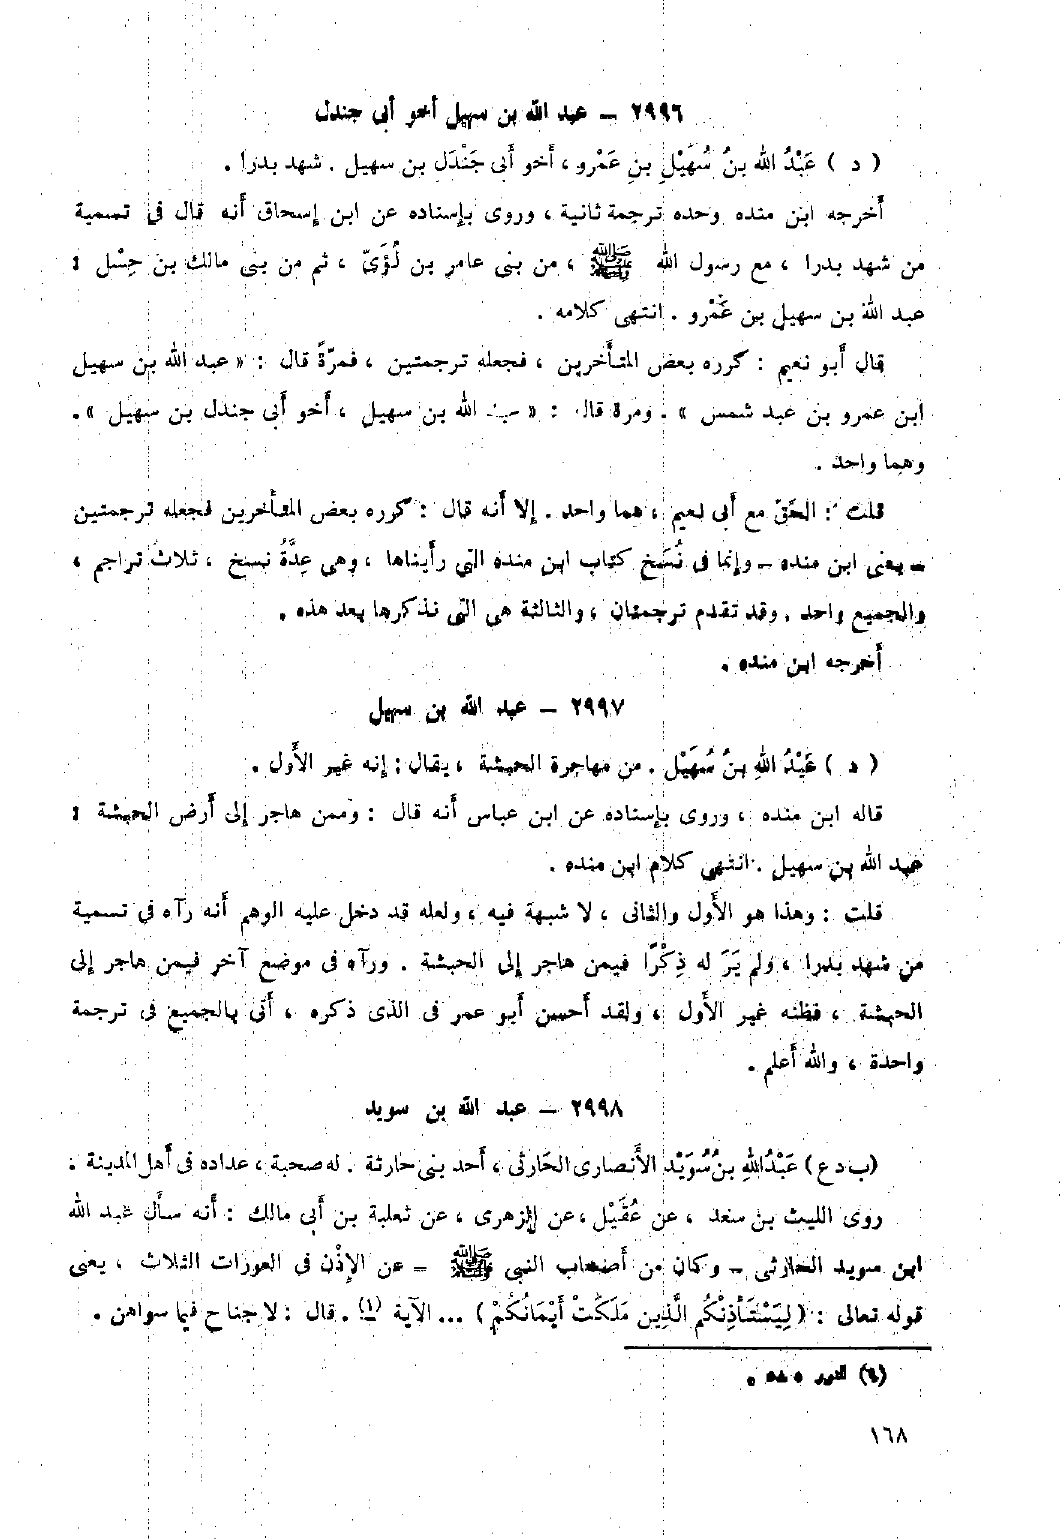 ٢٩٩٦ — عبد الله بن سهيل أخو أبى جندل
( د ) عَبْدُ الله بنُ سُهَيْلِ بنِ عَمْرو ، أخو أبى جَنْدَل بن سهيل . شهد بدرا .
أخرجه ابن منده وحده ترجمة ثانية ، وروى بإسناده عن ابن إسحاق أنه قال فى تسمية
من شهد بدرا ، مع رسول الله ﷺ ، من بنى عامر بن لُؤَىّ ، ثم من بنى مالك بن حِسْل :
عبد الله بن سهيل بن عَمْرو . انتهى كلامه .
قال أبو نعيم : كرره بعض المتأخرين ، فجعله ترجمتين ، فمرّةً قال : « عبد الله بن سهيل
ابن عمرو بن عبد شمس » . ومرة قال : « عبد الله بن سهيل ، أخو أبى جندل بن سهيل » .
وهما واحد .
قلت : الحَقّ مع أبى نعيم ، هما واحد . إلا أنه قال : كرره بعض المتأخرين فجعله ترجمتين
— يعنى ابن منده — وإنما فى نُسَخ كتاب ابن منده التى رأيناها ، وهى عِدَّةُ نسخ ، ثلاث تراجم ،
والجميع واحد . وقد تقدم ترجمتان ، والثالثة هى التى نذكرها بعد هذه .
أخرجه ابن منده .
٢٩٩٧ — عبد الله بن سهيل
( د ) عَبْدُ اللهِ بنُ سُهَيْل . من مهاجرة الحبشة ، يقال : إنه غير الأول .
قاله ابن منده ، وروى بإسناده عن ابن عباس أنه قال : وممن هاجر إلى أرض الحبشة :
عبد الله بن سهيل . انتهى كلام ابن منده .
قلت : وهذا هو الأول والثانى ، لا شبهة فيه ، ولعله قد دخل عليه الوهم أنه رآه فى تسمية
من شهد بدرا ، ولم يَرَ له ذِكْرًا فيمن هاجر إلى الحبشة . ورآه فى موضع آخر فيمن هاجر إلى
الحبشة ، فظنه غير الأول ، ولقد أحسن أبو عمر فى الذى ذكره ، أتى بالجميع فى ترجمة
واحدة ، والله أعلم .
٢٩٩٨ — عبد الله بن سويد
(ب د ع) عَبْدُ اللهِ بنُ سُوَيْد الأنصارى الحَارثى ، أحد بنى حارثة . له صحبة ، عداده فى أهل المدينة .
روى الليث بن سعد ، عن عُقَيْل ، عن الزهرى ، عن ثعلبة بن أبى مالك : أنه سأل عبد الله
ابن سويد الحارثى — وكان من أصحاب النبى ﷺ — عن الإِذْن فى العورات الثلاث ، يعنى
قوله تعالى : ( لِيَسْتَأْذِنْكُم الَّذِين مَلَكَتْ أَيْمَانُكُمْ ) ... الآية (١) . قال : لا جناح فيما سواهن .
(١) النور ٥٨ .
١٦٨